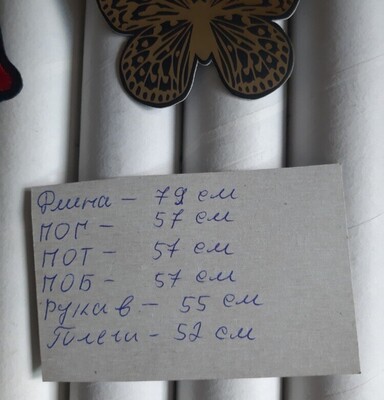 Длина – 79 см
ПОГ – 57 см
ПОТ – 57 см
ПОБ – 57 см
Рукав – 55 см
Плечи – 52 см